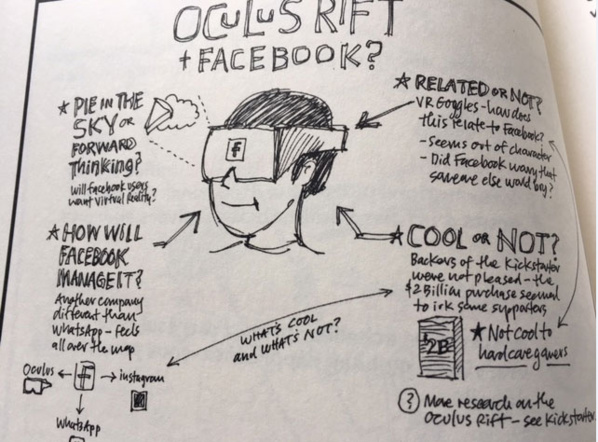 OCULUS RIFT
+ FACEBOOK?
★ PIE IN THE
SKY OR
FORWARD
Thinking?
Will facebook users
want virtual Reality?
★ HOW WILL
FACEBOOK
MANAGE IT?
Another company
different than
WhatsApp - feels
all over the map
Oculus ← f → instagram
WhatsApp
f
★ RELATED OR NOT?
VR Goggles - how does
this relate to Facebook?
- Seems out of character
- Did Facebook worry that
someone else would buy?
★ COOL OR NOT?
Backers of the Kickstarter
were not pleased - the
$2 Billion purchase seemed
to irk some supporters
WHAT'S COOL
and WHAT'S NOT?
2B
★ Not Cool to
hardcore gamers
? More research on the
Oculus Rift - see Kickstarter.